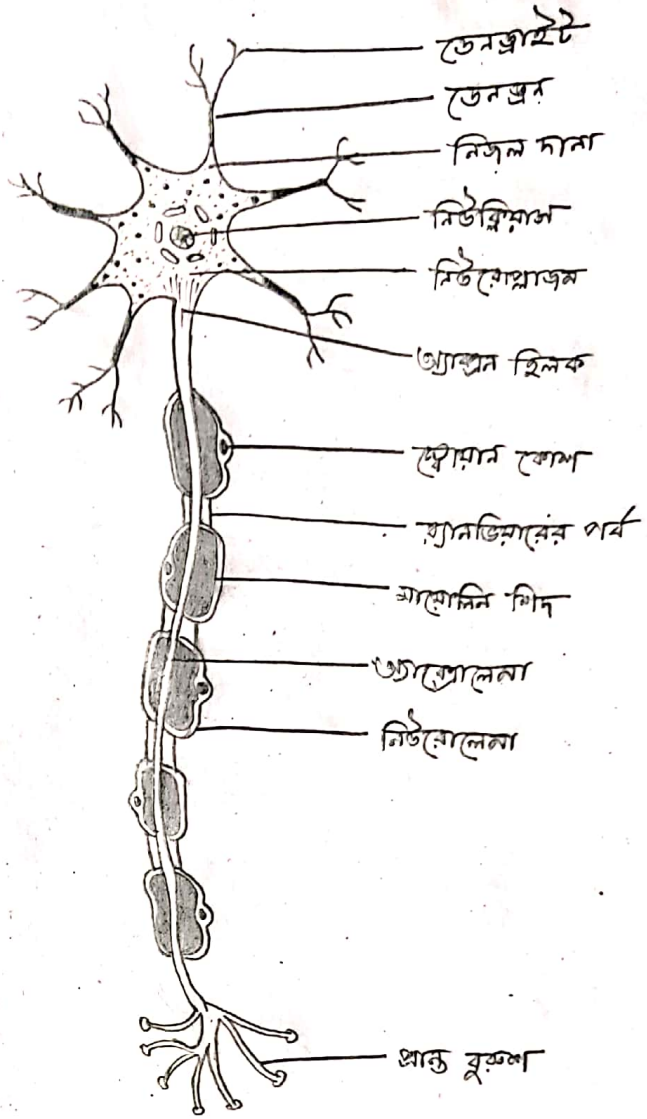 ডেনড্রাইট
ডেনড্রন
নিজল দানা
নিউক্লিয়াস
নিউরোপ্লাজম
অ্যাক্সন হিলক
স্বোয়ান কোশ
র‍্যানভিয়ারের পর্ব
মায়োলিন শিদ
অ্যাক্সোলেমা
নিউরোলেমা
প্রান্ত বুরুশ